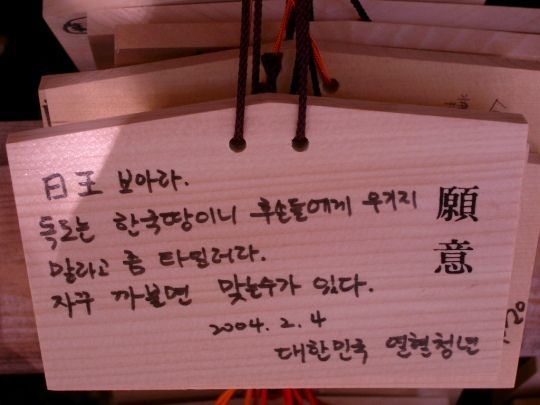 日王 보아라.
독도는 한국땅이니 후손들에게 우기지
말라고 좀 타일러라.
자꾸 까불면 맞는수가 있다.
2004. 2. 4
대한민국 열혈청년
願意